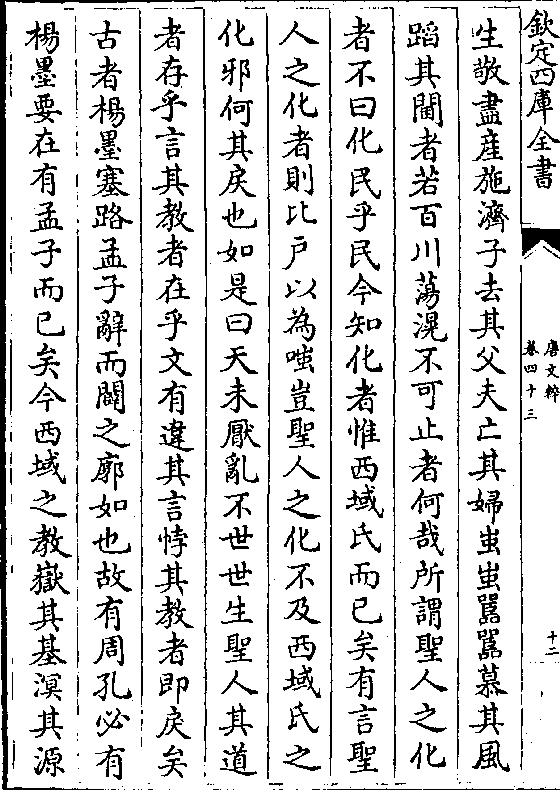 欽定四庫全書
唐文粹
卷四十三
十二
生敬盡産施濟子去其父夫亡其婦蚩蚩嚚嚚慕其風
蹈其閫者若百川蕩滉不可止者何哉所謂聖人之化
者不曰化民乎民今知化者惟西域氏而已矣有言聖
人之化者則比戸以為嗤豈聖人之化不及西域氏之
化邪何其戾也如是曰天未厭亂不世世生聖人其道
者存乎言其教者在乎文有違其言悖其教者即戾矣
古者楊墨塞路孟子辭而闢之廓如也故有周孔必有
楊墨要在有孟子而已矣今西域之教嶽其基溟其源